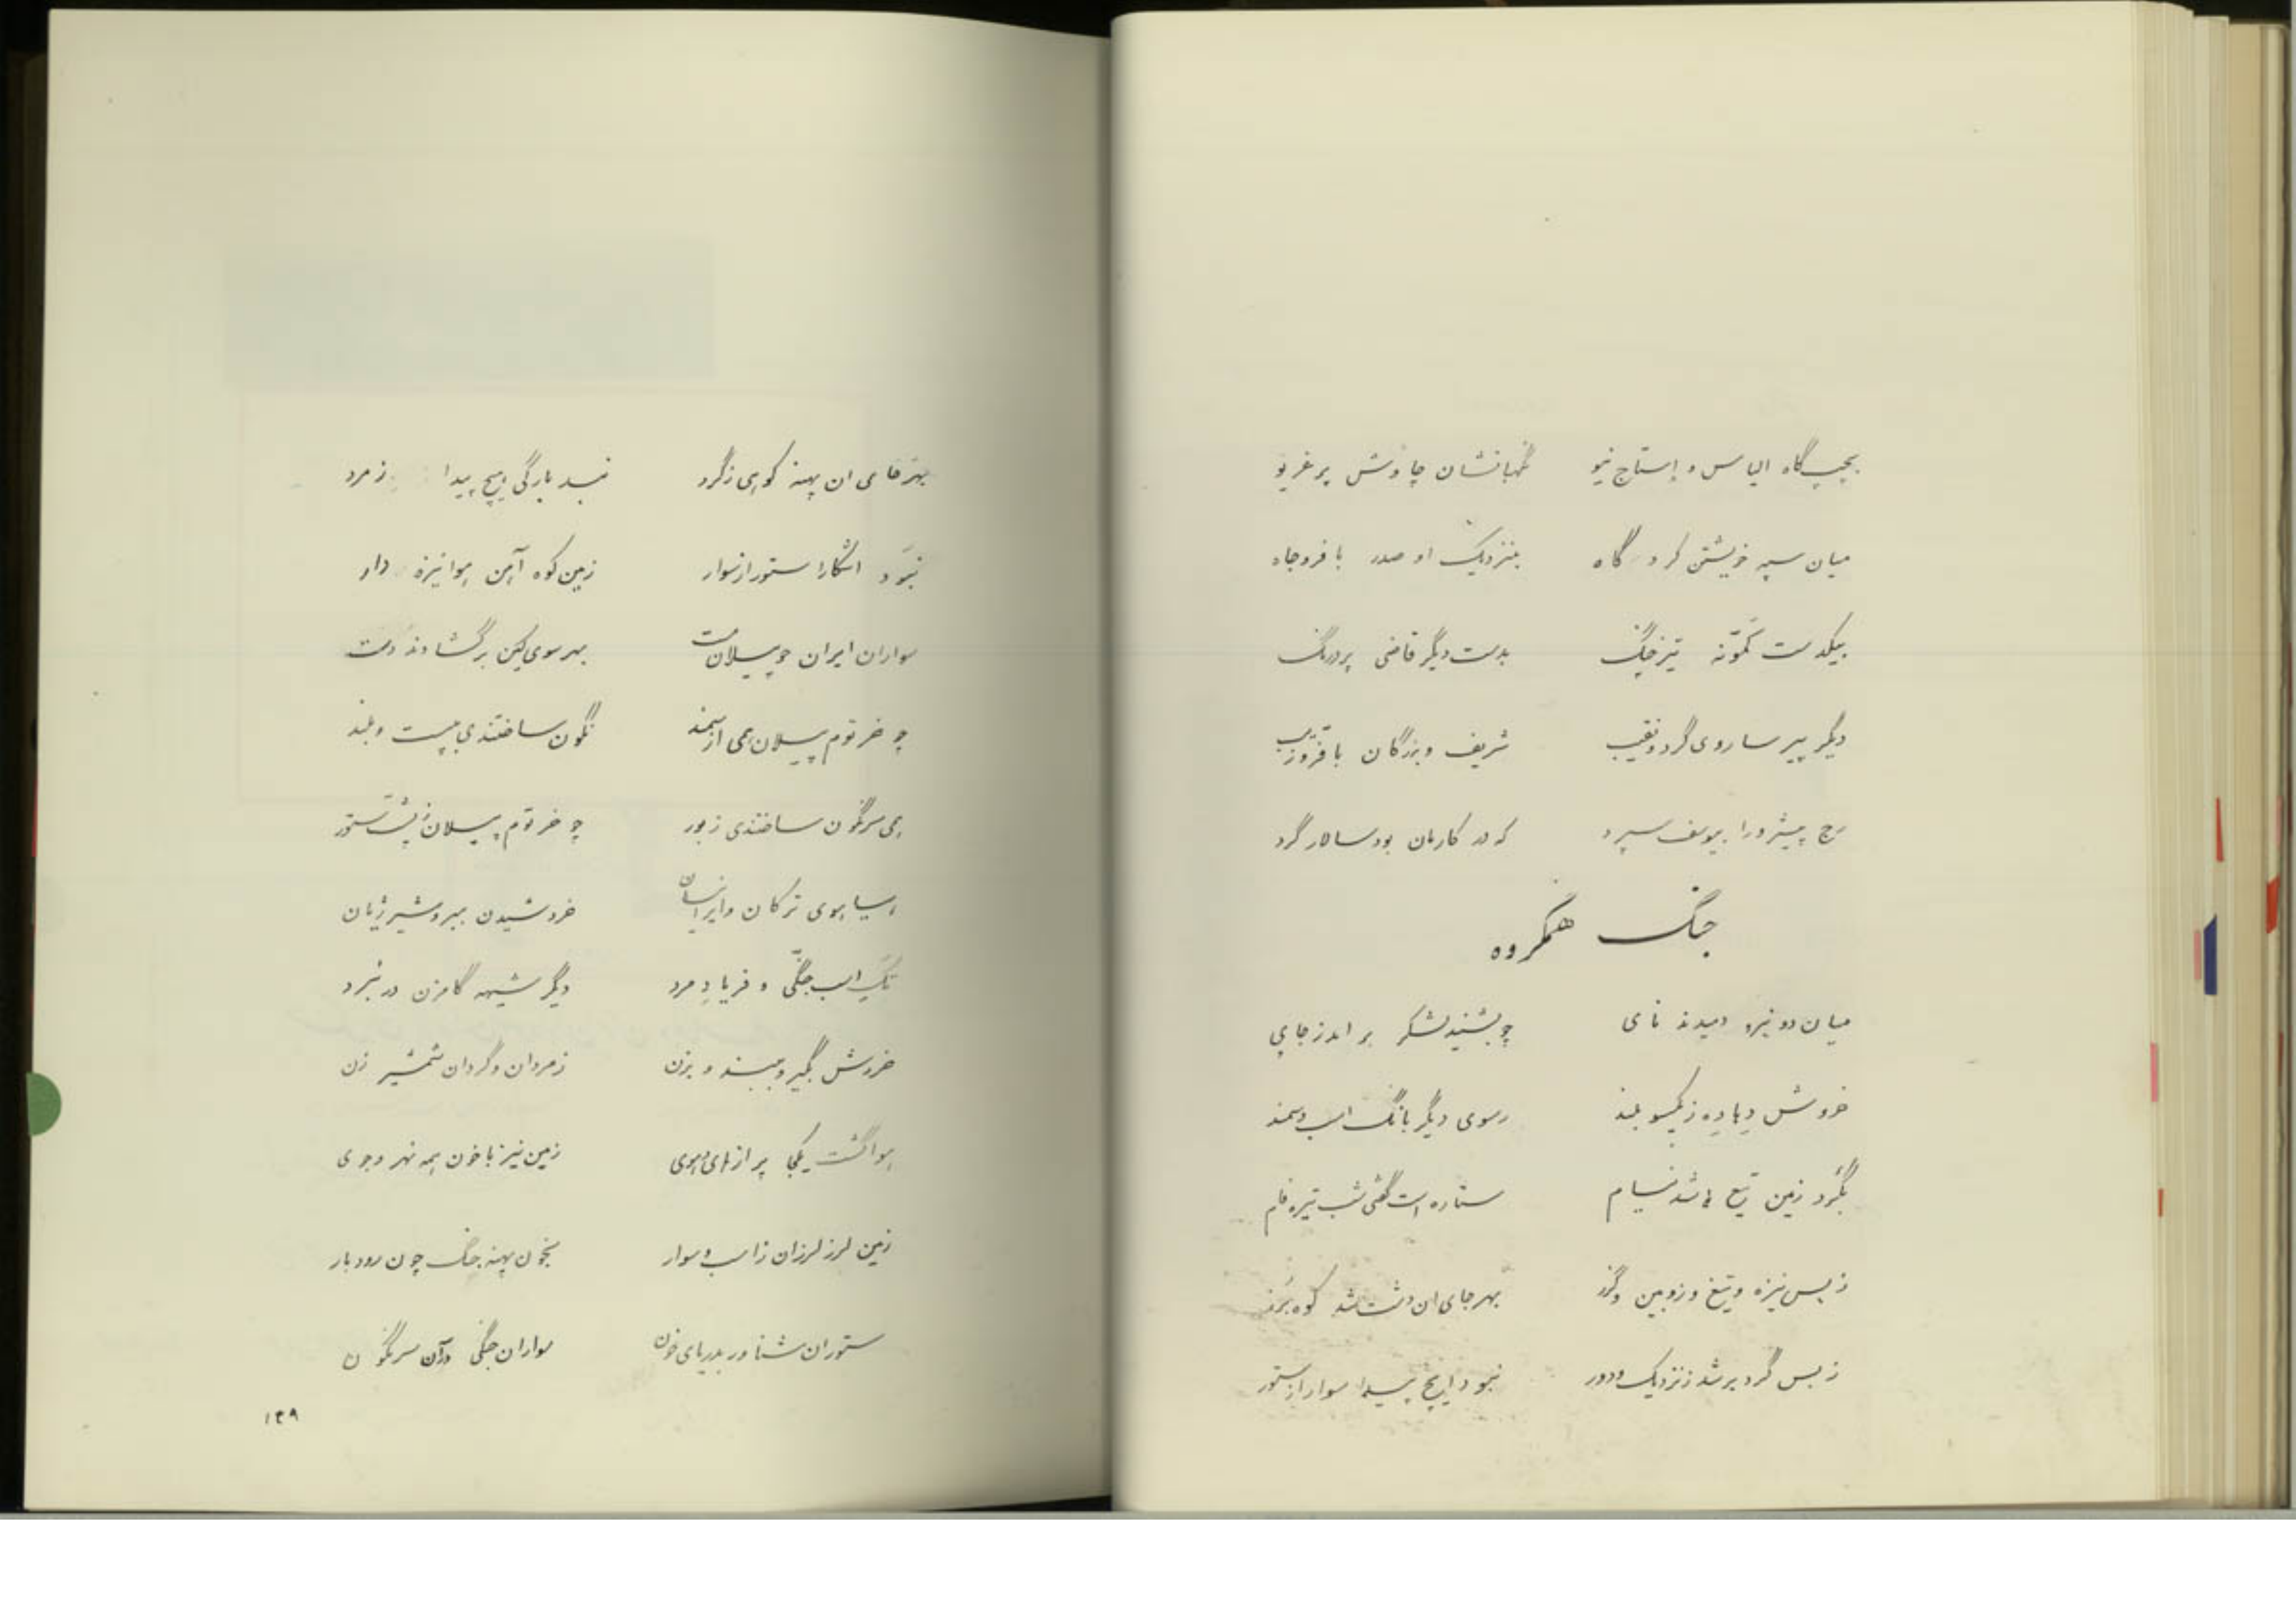 بچپگاه الیاس و استاج نیو نگهبانشان چاوش پرغریو
میان سپه خویشتن کرد گاه بنزدیک او صدر بافروجاه
بیکدست کمونه تیزچنگ بدست دیگر قاضی پردرنگ
دیگر پیر ساروی گرد ونقیب شریف و بزرگان بافروزیب
رج پیشرو را بیوسف سپرد که در کارمان بود سالار گرد
جنگ همگروه
میان دو نیرو دمیدند نای چو بشنید لشکر بر امد ز جای
خروش دهاده ز یکسو بلند ز سوی دیگر بانگ اسب و سمند
بگرد زمین تیغ شد نیام ستاره است گفتی شب تیره فام
ز بس نیزه و تیغ و زوبین وگرز بهر جای ان دشت شد کوه برز
ز بس گرد بر شد ز نزدیک ودور نبود ایچ پیدا سوار از ستور
بهر جای ان پهنه کوهی ز گرد نبد بارگی هیچ پیدا ز مرد
نبود اشکارا ستور از سوار زمین کوه آهن هوا نیزه دار
سواران ایران چو پیلان مست بهر سوی کین بر گشادند دست
چو خرتوم پیلان همی از سمند نگون ساختندی بپست و بلند
همی سرنگون ساختندی ز بور چو خرتوم پیلان ز پشت ستور
هیاهوی ترکان و ایرانیان خروشیدن ببر و شیر ژیان
تگ اسب جنگی و فریاد مرد دیگر شیهه گامزن در نبرد
خروش بگیر و ببند و بزن ز مردان و گردان شمشیر زن
هوا گشت یکجا پر از های وهوی زمین نیز با خون همه نهر و جوی
زمین لرز لرزان ز اسب و سوار بخون پهنه جنگ چون رود بار
ستوران شناور بدریای خون سواران جنگی درآن سرنگون
۱۳۹